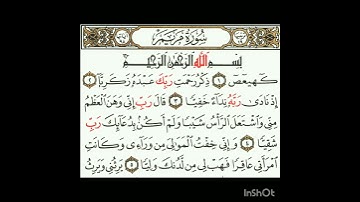 سُورَةُ مَرْيَمَ
بِسْمِ اللَّهِ الرَّحْمَٰنِ الرَّحِيمِ
كهيعص ١ ذِكْرُ رَحْمَتِ رَبِّكَ عَبْدَهُ زَكَرِيَّا ٢
إِذْ نَادَىٰ رَبَّهُ نِدَاءً خَفِيًّا ٣ قَالَ رَبِّ إِنِّي وَهَنَ الْعَظْمُ
مِنِّي وَاشْتَعَلَ الرَّأْسُ شَيْبًا وَلَمْ أَكُنْ بِدُعَائِكَ رَبِّ
شَقِيًّا ٤ وَإِنِّي خِفْتُ الْمَوَالِيَ مِنْ وَرَاءِي وَكَانَتِ
امْرَأَتِي عَاقِرًا فَهَبْ لِي مِنْ لَدُنْكَ وَلِيًّا ٥ يَرِثُنِي وَيَرِثُ
InShOt